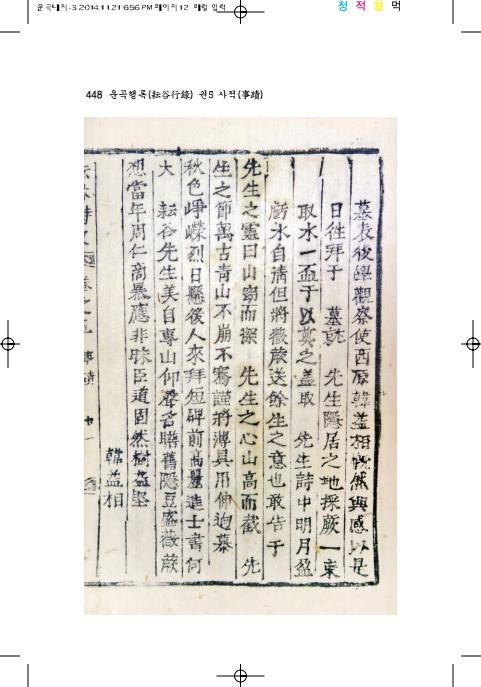 운곡내지-3 2014.11.21 6:56 PM 페이지12 매월 입력
청 적 황 먹
448 운곡행록(耘谷行錄) 권5 사적(事蹟)
墓表後學觀察使西原韓益相慨然興感以是
日徃拜于 墓就 先生隱居之地採蕨一束
取水一盃于以奠之盖取 先生詩中明月盈
水自淸但將薇蕨送餘生之意也敢告于
先生之靈曰山窈而深 先生之心山高而截 先
生之節萬古靑山不崩不騫謹將薄具用伸追慕
秋色崢嶸烈日懸後人來拜短碑前高麗進士書何
大 耘谷先生美自專山仰 舊隱豆盛薇蕨
想當年周仁商暴應非昧臣道固然樹益堅
韓益相
卷之五 事蹟